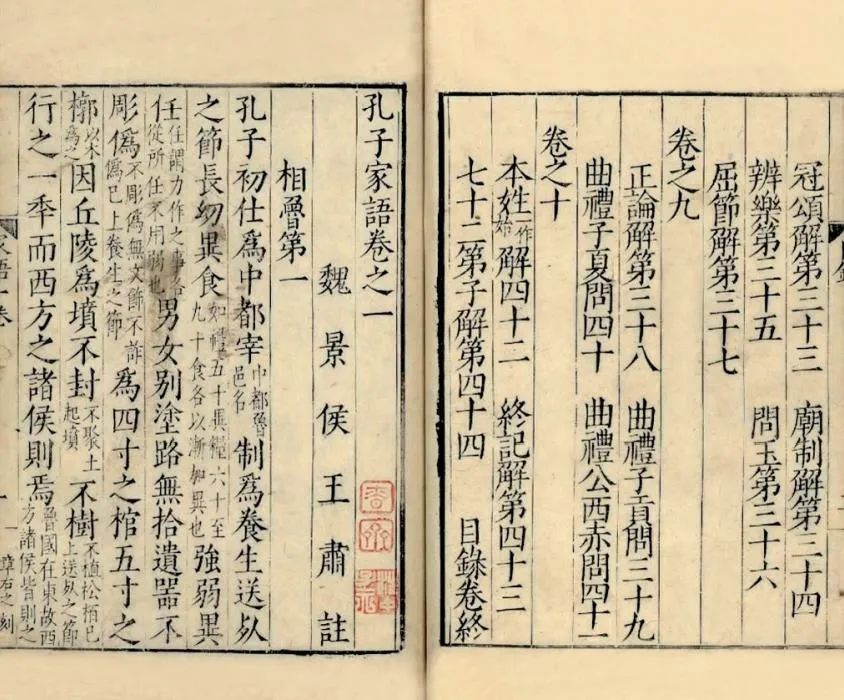 冠頌解第三十三 廟制解第三十四
辨樂第三十五 問玉第三十六
屈節解第三十七
卷之九
正論解第三十八 曲禮子貢問三十九
曲禮子夏問四十 曲禮公西赤問四十一
卷之十
本姓作始解四十二 終記解第四十三
七十二第子解第四十四 目錄卷終
孔子家語卷之一
魏景侯王肅註
相魯第一
孔子初仕爲中都宰中都魯邑名制爲養生送死
之節長幼異食如禮五十異糧六十至九十食各以漸加異也強弱異
任任謂力作之事各從所任不用弱也男女別塗路無拾遺器不
彫僞不彫爲無文飾不詐僞已上養生之節爲四寸之棺五寸之
槨以木爲之因丘陵爲墳不封不聚土起墳不樹不植松栢已上送死之節
行之一秊而西方之諸侯則焉魯國在東故西方諸侯皆則之
語一卷
一
章右之刻